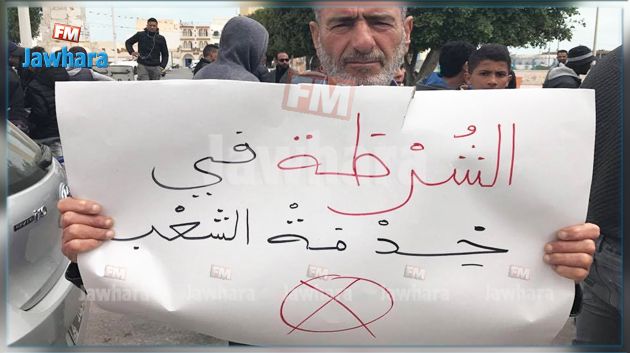 FM
Jawhara
FM
Jawhara
الشُرْطة في
خِدْمَةْ الشَعْب
FM
Jawhara
FM
Jawhara
FM
Jawhara
FM
Jawhara